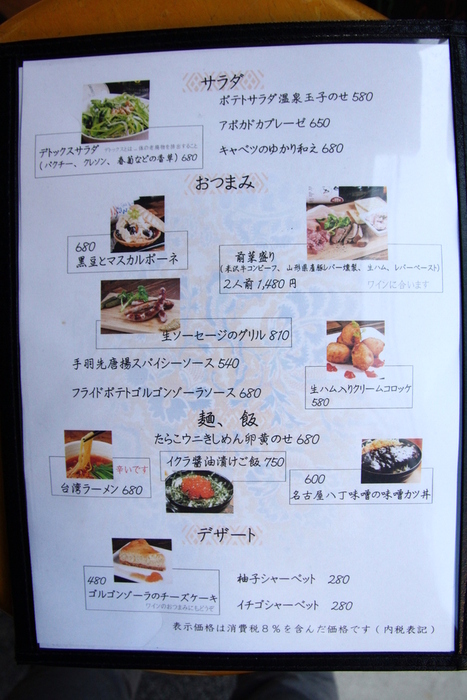 サラダ
ポテトサラダ温泉玉子のせ 580
アボカドカプレーゼ 650
キャベツのゆかり和え 680
デトックスサラダ デトックスとは…体の老廃物を排出すること
(パクチー、クレソン、春菊などの香草) 680
おつまみ
680
黒豆とマスカルポーネ
前菜盛り
(米沢牛コンビーフ、山形県産豚レバー燻製、生ハム、レバーペースト)
2人前 1,480円 ワインに合います
生ソーセージのグリル 810
手羽先唐揚スパイシーソース 540
フライドポテトゴルゴンゾーラソース 680
生ハム入りクリームコロッケ
580
麺、飯
たらこウニきしめん卵黄のせ 680
辛いです
台湾ラーメン 680
イクラ醤油漬けご飯 750
600
名古屋八丁味噌の味噌カツ丼
デザート
480
ゴルゴンゾーラのチーズケーキ
ワインのおつまみにもどうぞ
柚子シャーベット 280
イチゴシャーベット 280
表示価格は消費税8%を含んだ価格です(内税表記)